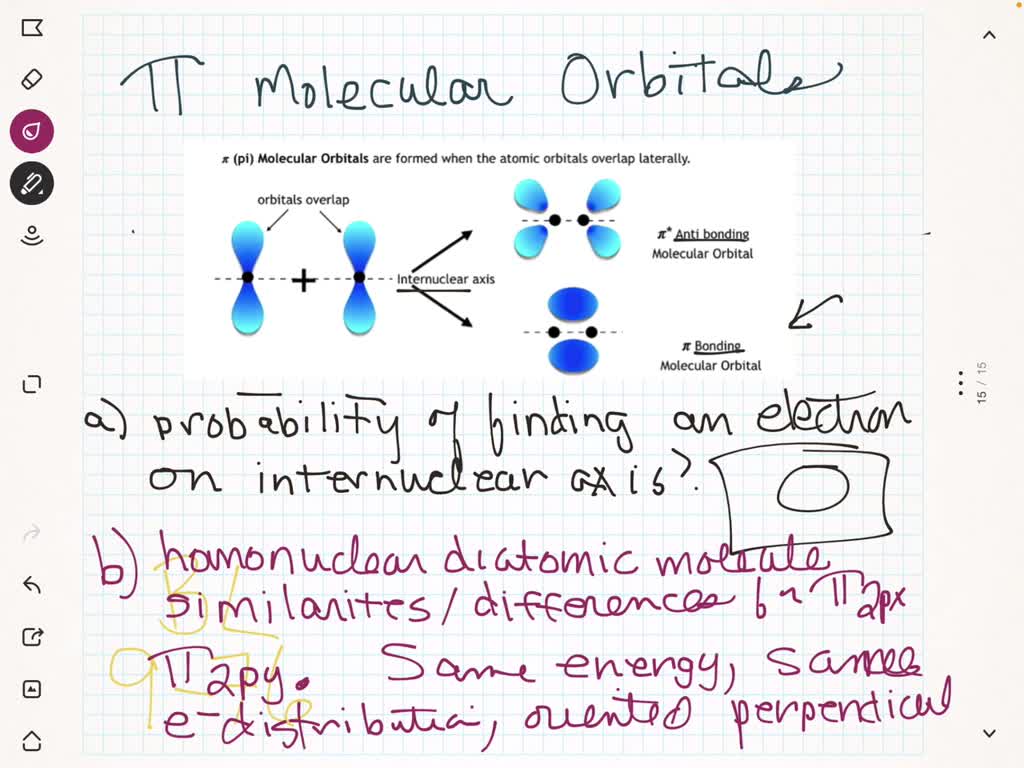 π Molecular Orbitals
π (pi) Molecular Orbitals are formed when the atomic orbitals overlap laterally.
orbitals overlap
π* Anti bonding
Molecular Orbital
+
Internuclear axis
π Bonding
Molecular Orbital
15 / 15
a) probability of finding an electron
on internuclear axis? 0
b) homonuclear diatomic molecule
similarites/differences b/n π2px
π2py. Same energy, same
e- distribution, oriented perpendicul